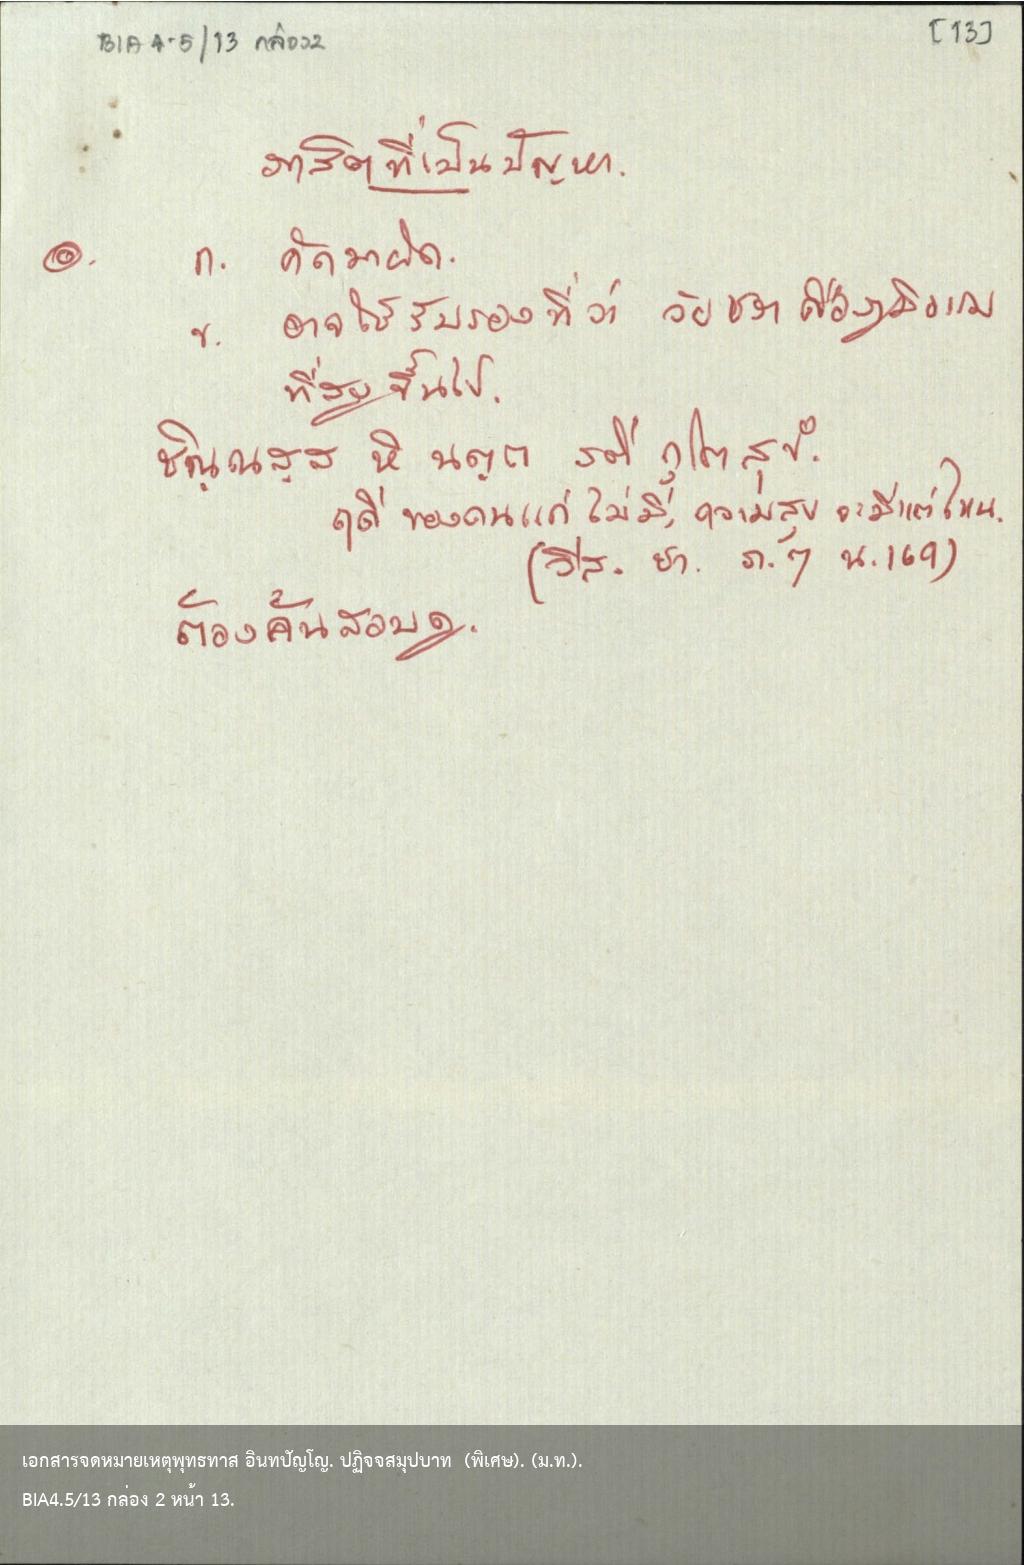 BIA 4.5/13 กล่อง2
[13]
ภาษิตที่เป็นปัญหา.
๑. ก. คัดมาผิด.
ข. อาจใช้รับรองที่ว่า วัยชรา ต้อง
ที่สูงขึ้นไป.
ชิณฺณสฺส หิ นตฺถิ รติ กุโต สุขํ.
ฤดี ของคนแก่ ไม่มี, ความสุข จะมีแต่ไหน.
(วิส. ภ. ๆ น. 169)
ต้องค้นสอบดู.
เอกสารจดหมายเหตุพุทธทาส อินทปัญโญ. ปฏิจจสมุปบาท (พิเศษ). (ม.ท.).
BIA4.5/13 กล่อง 2 หน้า 13.